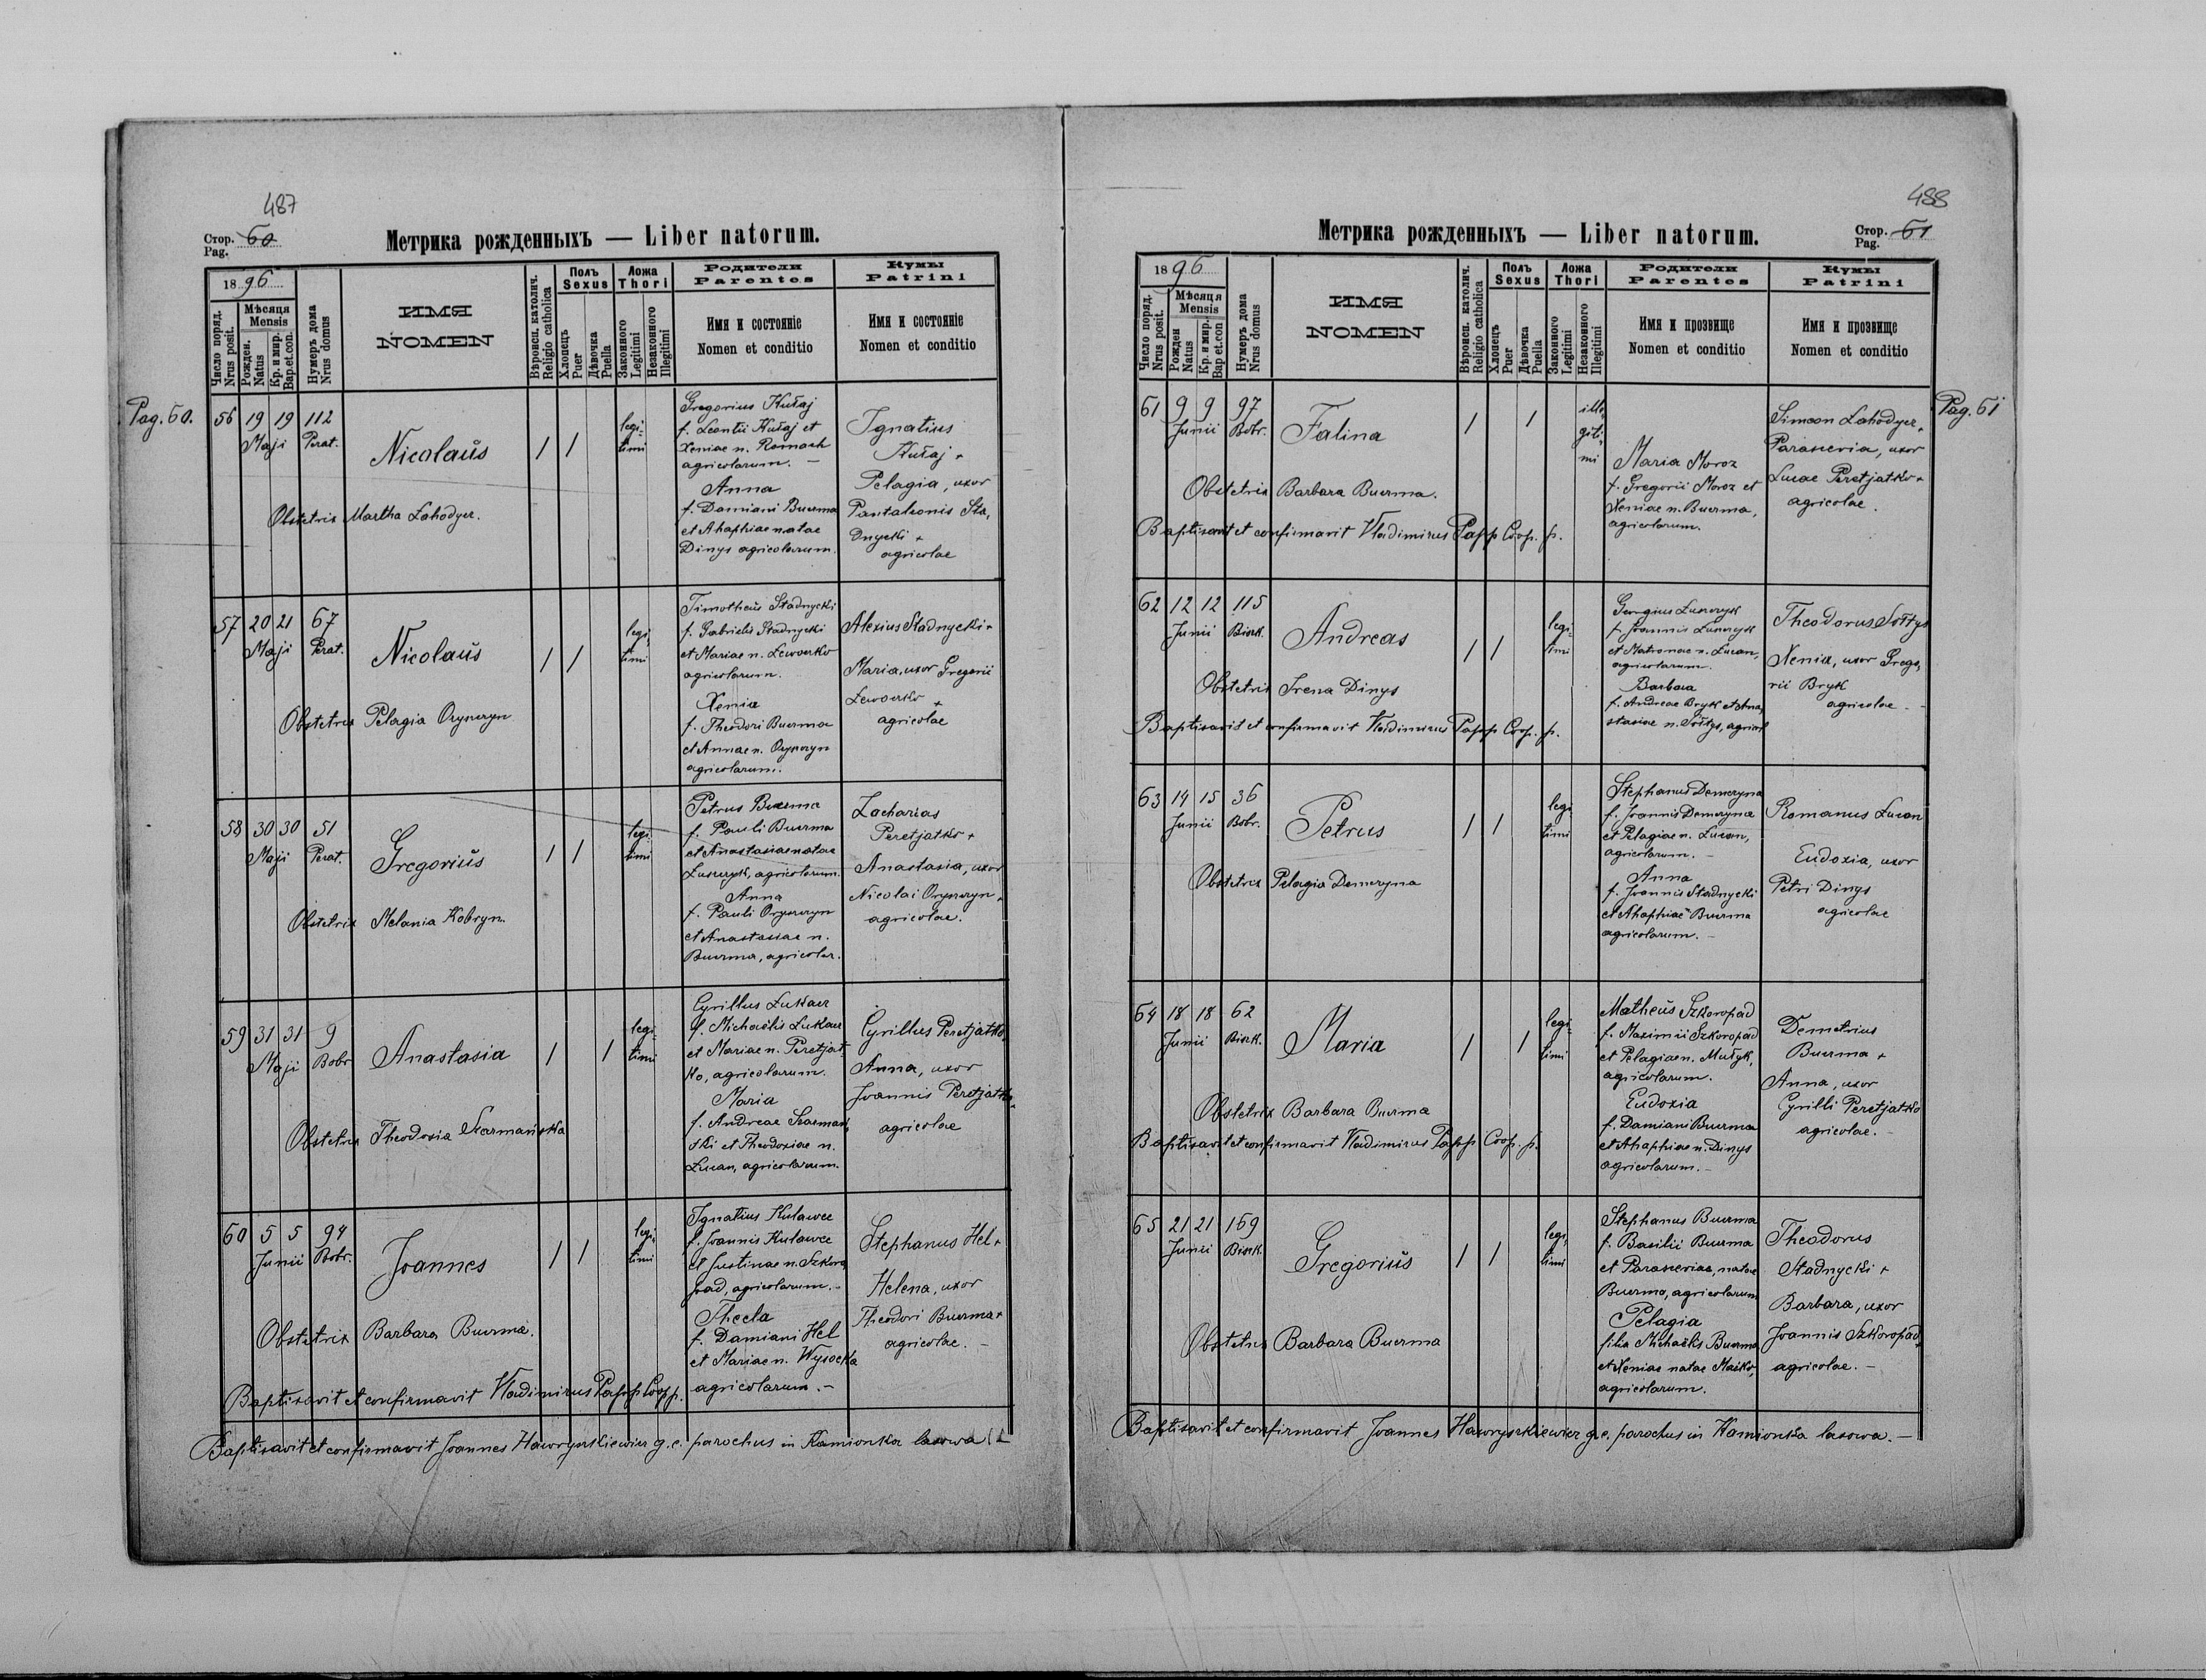 487
Стор. 60
Pag.
Метрика рожденныхъ — Liber natorum.
1896
Число поряд. Nrus posit.
Мѣсяця Mensis
Рожден. Natus
Кр. и мир. Bap. et. con.
Нумеръ дома Nrus domus
ИМЯ
NOMEN
Вѣроисп. католич. Religio catholica
Полъ Sexus
Хлопецъ Puer
Дѣвочка Puella
Ложа Thori
Законного Legitimi
Незаконного Illegitimi
Родители
Parentes
Имя и состояніе
Nomen et conditio
Кумы
Patrini
Имя и состояніе
Nomen et conditio
Pag. 60.
56 19 19 112
Maji Perat.
Nicolaŭs
/ /
legi-
timi
Gregorius Kułaj
f. Leontii Kułaj et
Xeniae n. Romach
agricolarum. —
Anna
f. Damiani Buerma
et Ahaphiae natae
Dinys agricolarum.
Ignatius
Kułaj +
Pelagia, uxor
Pantaleonis Sta,
dnycki +
agricolae
Obstetrix Martha Lahodyer.
57 20 21 67
Maji Perat.
Nicolaŭs
/ /
legi-
timi
Timotheŭs Stadnycki
f. Gabrielis Stadnycki
et Mariae n. Lewoczko
agricolarum.
Xenia
f. Theodori Buerma
et Annae n.
agricolarum.
Alexius Stadnycki +
Maria, uxor Gregorii
Lewoczko +
agricolae
Obstetrix Pelagia
58 30 30 51
Maji Perat.
Gregoriŭs
/ /
legi-
timi
Petrus Buerma
f. Pauli Buerma
et Anastasiae natae
agricolarum.
Anna
f. Pauli
et Anastasiae n.
Buerma, agricolar.
Zacharias
Peretjatko +
Anastasia, uxor
Nicolai
agricolae.
Obstetrix Melania Kobryn.
59 31 31 9
Maji Bobr.
Anastasia
/ /
legi-
timi
Cyrillus Lukacz
f. Michaëlis Lukacz
et Mariae n. Peretjat-
ko, agricolarum.
Maria
f. Andreae Szarmań,
ski et Theodosiae n.
Lucan, agricolarum.
Cyrillus Peretjatko,
Anna, uxor
Joannis Peretjatko
agricolae
Obstetrix Theodosia Szarmańska
60 5 5 94
Junii Bobr.
Joannes
/ /
legi,
timi
Ignatius Kulawec
f. Joannis Kulawec
et Justinae n. Szkoro,
pad, agricolarum. -
Thecla
f. Damiani Hel
et Mariae n. Wysocka
agricolarum. -
Stephanus Hel +
Helena, uxor
Theodori Buerma +
agricolae. -
Obstetrix Barbara Buerma.
Baptisavit et confirmavit Vladimirus Papp Coop. p.
Baptisavit et confirmavit Joannes Hawryszkiewicz g. c. parochus in Kamionka lasowa
488
Стор. 61
Pag.
Метрика рожденныхъ — Liber natorum.
1896
Число поряд. Nrus posit.
Мѣсяця Mensis
Рожден Natus
Кр. и мир. Bap et.con
Нумеръ дома Nrus domus
ИМЯ
NOMEN
Вѣроисп. католич. Religio catholica
Полъ Sexus
Хлопецъ Puer
Дѣвочка Puella
Ложа Thori
Законного Legitimi
Незаконного Illegitimi
Родители
Parentes
Имя и прозвище
Nomen et conditio
Кумы
Patrini
Имя и прозвище
Nomen et conditio
Pag. 61
61 9 9 97
Junii Bobr.
Falina
/ /
ille-
giti-
mi
Maria Moroz
f. Gregorii Moroz et
Xeniae n. Buerma,
agricolarum.
Simeon Lahodyer +
Parascevia, uxor
Lucae Peretjatko +
agricolae.
Obstetrix Barbara Buerma.
Baptisavit et confirmavit Vladimirus Papp Coop. p.
62 12 12 115
Junii Biszk.
Andreas
/ /
legi-
timi
Georgius
f. Joannis
et Matronae n. Lucan,
agricolarum.
Barbara
f. Andreae Bryk et Ana,
stasiae n. Sołtys, agricol
Theodorus Sołtys
Xenia, uxor Grego,
rii Bryk
agricolae. -
Obstetrix Irena Dinys
Baptisavit et confirmavit Vladimirus Papp Coop. p.
63 14 15 36
Junii Bobr.
Petrus
/ /
legi-
timi
Stephanus Demczyna
f. Joannis Demczyna
et Pelagiae n. Lucan,
agricolarum. -
Anna
f. Joannis Stadnycki
et Ahaphiae Buerma
agricolarum. -
Romanus Lucan
Eudoxia, uxor
Petri Dinys
agricolae
Obstetrix Pelagia Demczyna
64 18 18 62
Junii Biszk.
Maria
/ /
legi-
timi
Matheŭs Szkoropad
f. Maximii Szkoropad
et Pelagiae n. Mułyk,
agricolarum.
Eudoxia
f. Damiani Buerma
et Ahaphiae n. Dinys
agricolarum. -
Demetrius
Buerma +
Anna, uxor
Cyrilli Peretjatko
agricolae. -
Obstetrix Barbara Buerma
Baptisavit et confirmavit Vladimirus Papp Coop. p.
65 21 21 159
Junii Biszk.
Gregoriŭs
/ /
legi,
timi
Stephanus Buerma
f. Basilii Buerma
et Parasceviae, natae
Buerma, agricolarum
Pelagia
filia Michaëlis Buerma
et Xeniae natae Maśko,
agricolarum.
Theodorus
Stadnycki +
Barbara, uxor
Joannis Szkoropad +
agricolae. -
Obstetrix Barbara Buerma
Baptisavit et confirmavit Joannes Hawryszkiewicz g. c. parochus in Kamionka lasowa. —